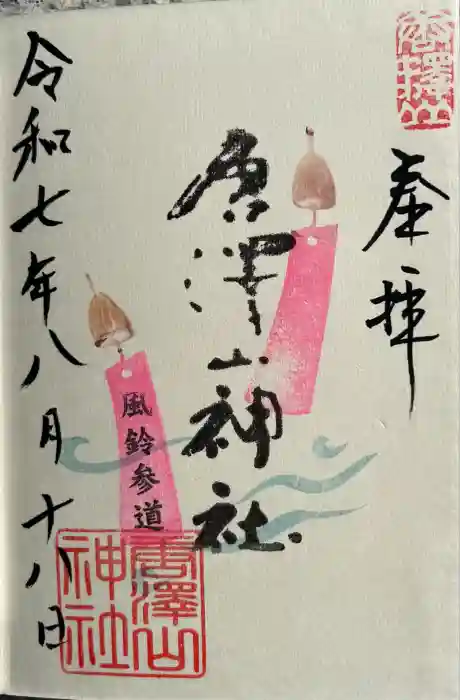 奉拝
唐澤山神社
風鈴参道
令和七年八月十八日
唐澤山
神社